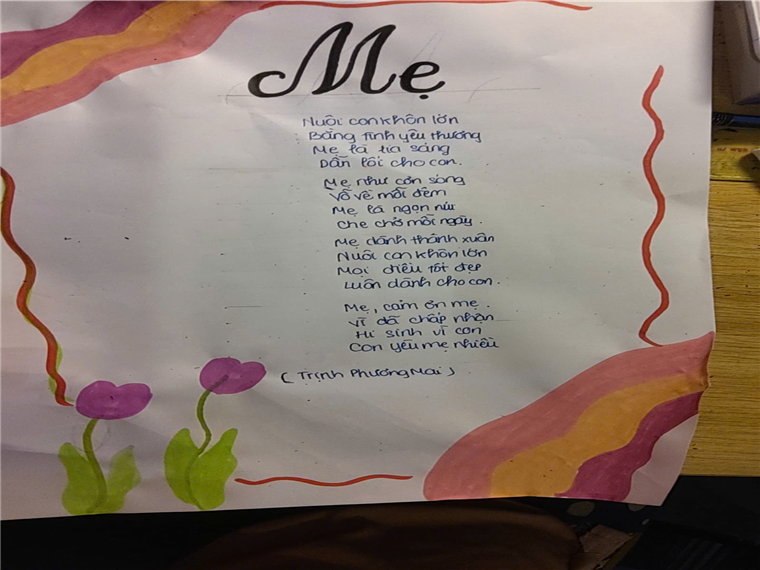 Mẹ
Nuôi con khôn lớn
Bằng tình yêu thương
Mẹ là tia sáng
Dẫn lối cho con.
Mẹ như cơn sóng
Vỗ về mỗi đêm
Mẹ là ngọn núi
Che chở mỗi ngày.
Mẹ dành thanh xuân
Nuôi con khôn lớn
Mọi điều tốt đẹp
Luôn dành cho con.
Mẹ, cảm ơn mẹ.
Vì đã chấp nhận
Hi sinh vì con
Con yêu mẹ nhiều
(Trịnh Phương Mai)